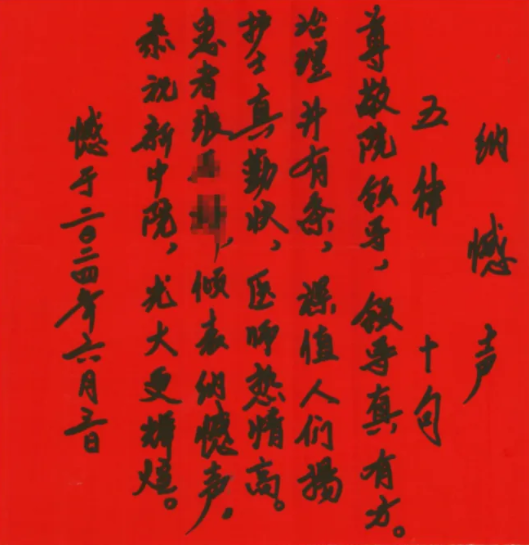 纳憾声
五律 十句
尊敬院领导，领导真有方。
治理井有条，値人们扬
护士真勤快，医师热情高。
患者张，倾表纳憾声。
恭祝新中院，光大更辉煌。
憾于二〇二四年六月三日